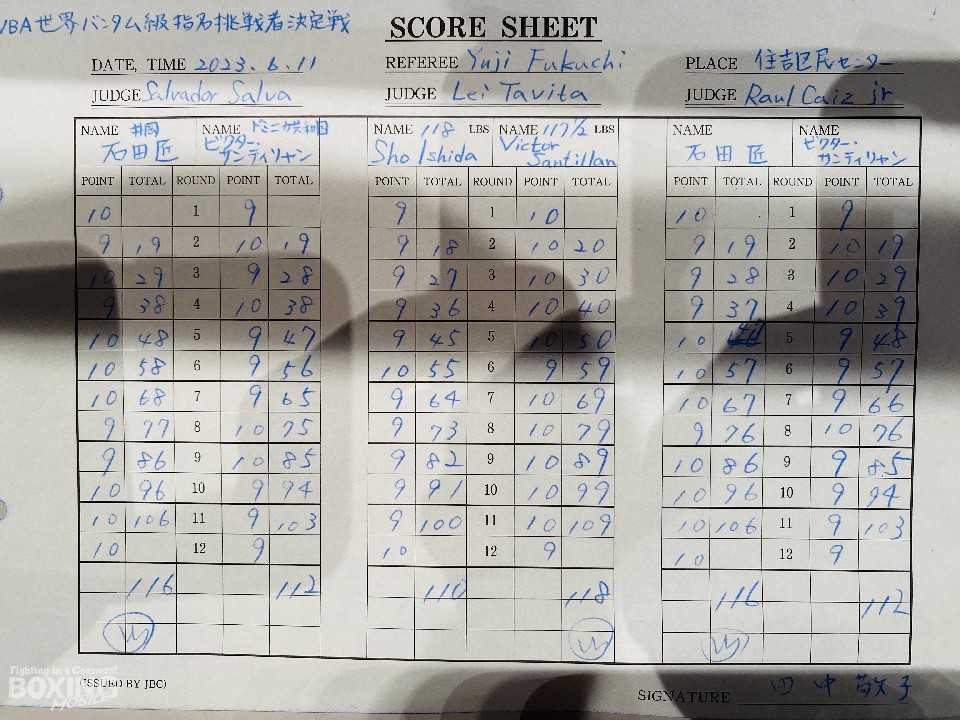 WBA世界バンタム級指名挑戦者決定戦
SCORE SHEET
DATE, TIME 2023.6.11 REFEREE Yuji Fukuchi PLACE 住吉区民センター
JUDGE Salvador Salva JUDGE Lei Tavita JUDGE Raul Caiz jr
NAME 井岡 NAME ドミニカ共和国 NAME 118 LBS NAME 117½ LBS NAME NAME
石田匠 ビクター・サンティリャン Sho Ishida Victor Santillan 石田匠 ビクター・サンティリャン
POINT TOTAL ROUND POINT TOTAL POINT TOTAL ROUND POINT TOTAL POINT TOTAL ROUND POINT TOTAL
10 1 9 9 1 10 10 1 9
9 19 2 10 19 9 18 2 10 20 9 19 2 10 19
10 29 3 9 28 9 27 3 10 30 9 28 3 10 29
9 38 4 10 38 9 36 4 10 40 9 37 4 10 39
10 48 5 9 47 9 45 5 10 50 10 5 9 48
10 58 6 9 56 10 55 6 9 59 10 57 6 9 57
10 68 7 9 65 9 64 7 10 69 10 67 7 9 66
9 77 8 10 75 9 73 8 10 79 9 76 8 10 76
9 86 9 10 85 9 82 9 10 89 10 86 9 9 85
10 96 10 9 94 9 91 10 10 99 10 96 10 9 94
10 106 11 9 103 9 100 11 10 109 10 106 11 9 103
10 12 9 10 12 9 10 12 9
116 112 110 118 116 112
W W W
(ISSUED BY JBC) SIGNATURE 田中敬子
Fighting in 4 Corners!
BOXING
MOBILE